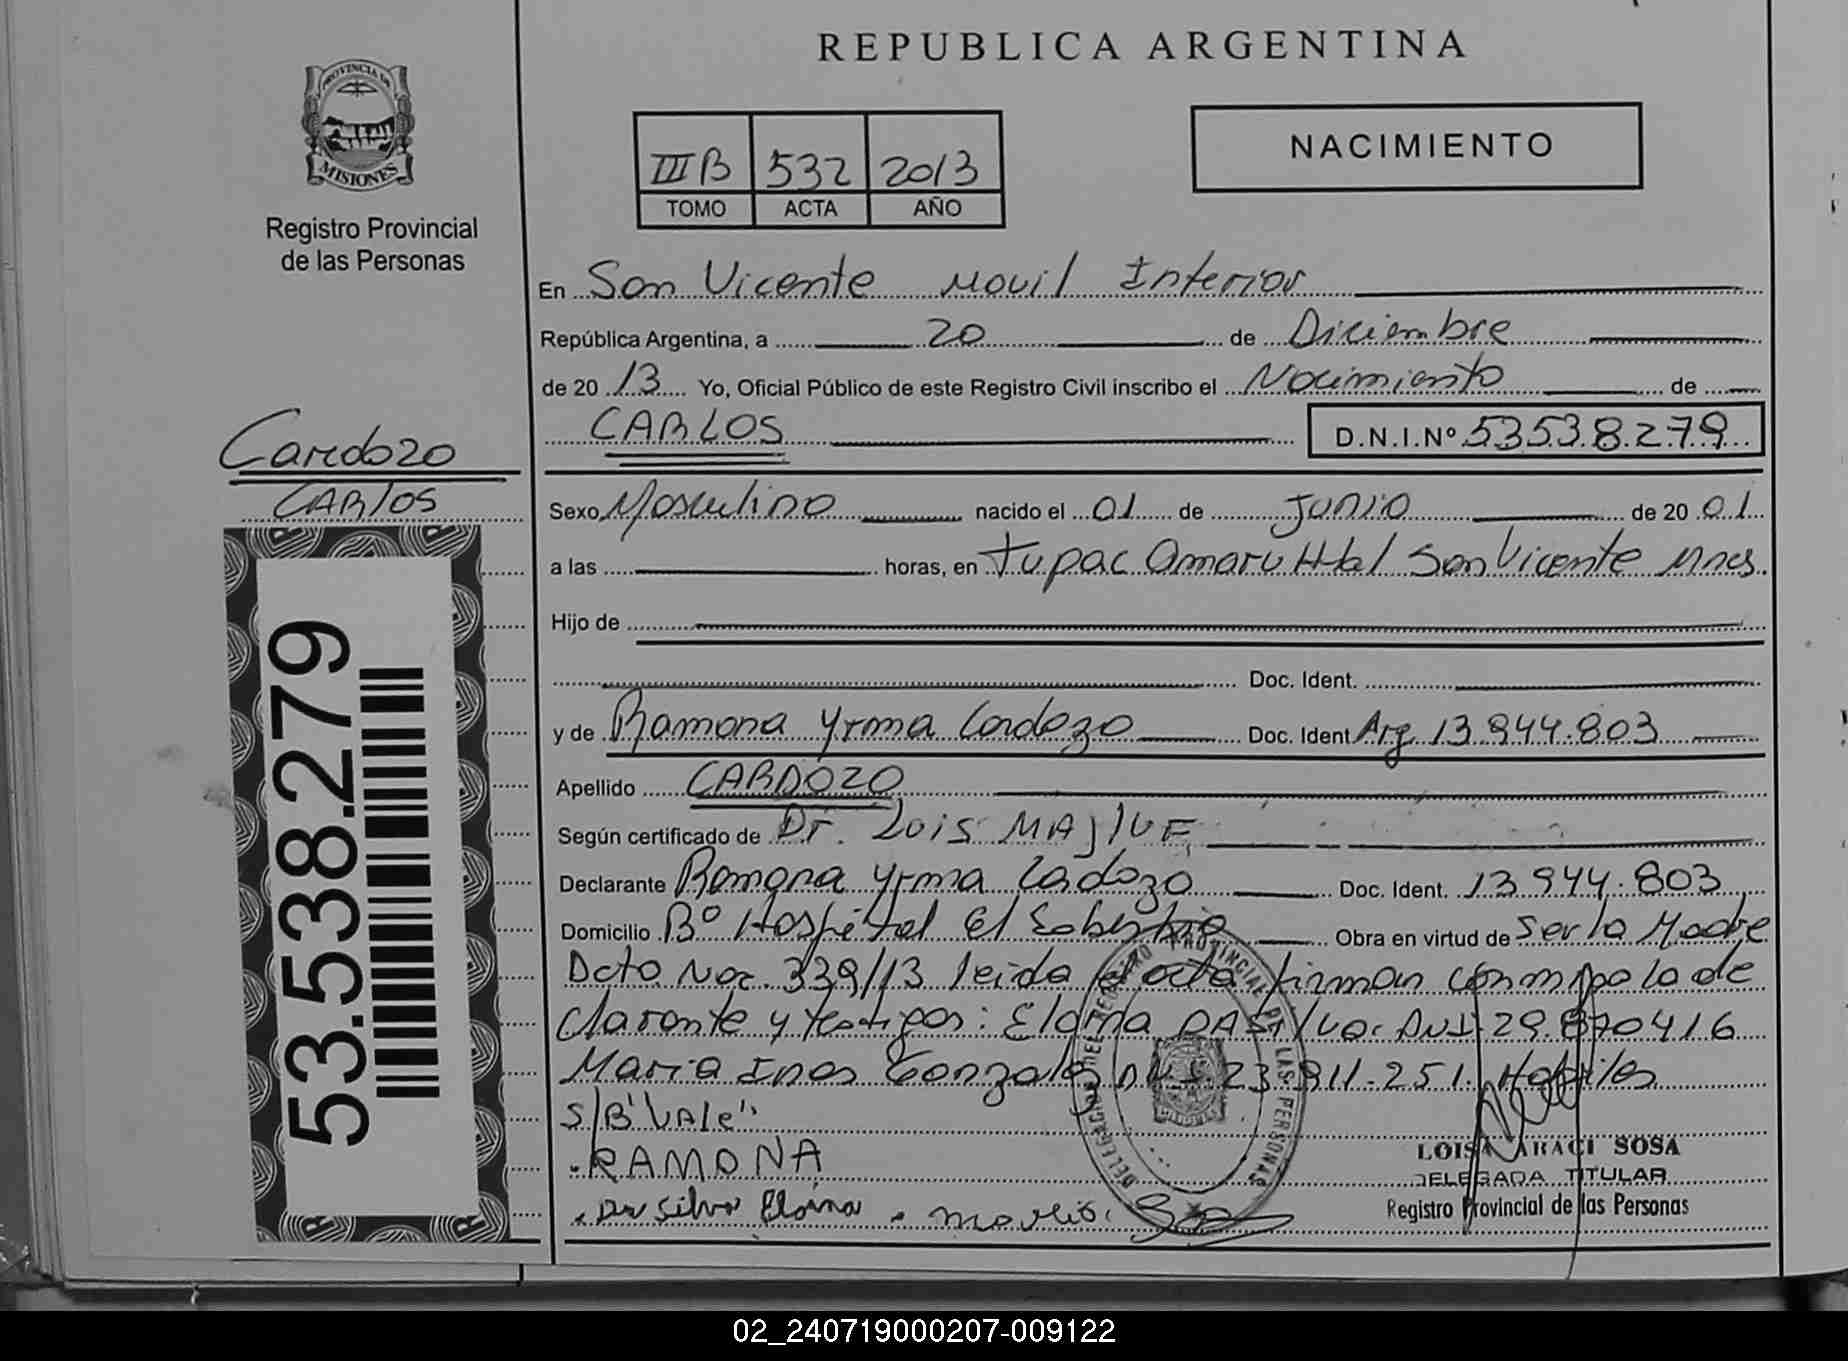 PROVINCIA DE
MISIONES
Registro Provincial
de las Personas
REPUBLICA ARGENTINA
III B 532 2013
TOMO ACTA AÑO
NACIMIENTO
En San Vicente Movil Interior
República Argentina, a 20 de Diciembre
de 20 13 Yo, Oficial Público de este Registro Civil inscribo el Nacimiento de
CARLOS D.N.I.Nº 53538279
Cardozo
CARlOS
53.538.279
Sexo Masculino nacido el 01 de Junio de 20 01
a las horas, en Tupac Amaru Htal San Vicente Mnes.
Hijo de
Doc. Ident.
y de Ramona Yrma Cardozo Doc. Ident Arg 13.944.803
Apellido CARDOZO
Según certificado de Dr. Luis
Declarante Ramona Yrma Cardozo Doc. Ident. 13.944.803
Domicilio Bº Hospital El Soberbio Obra en virtud de Ser la Madre
Dcto Nac. 339/13 leida el acta firman conmigo la de
clarante y testigos: Elaina DNI. 29.870416
Maria Ines Gonzalez DNI 23.911.251. Habiles
S/B "VAle"
RAMONA
Da Silva Elaina
DELEGACION DEL REGISTRO PROVINCIAL DE LAS PERSONAS
LOISA ARACI SOSA
DELEGADA TITULAR
Registro Provincial de las Personas
02_240719000207-009122